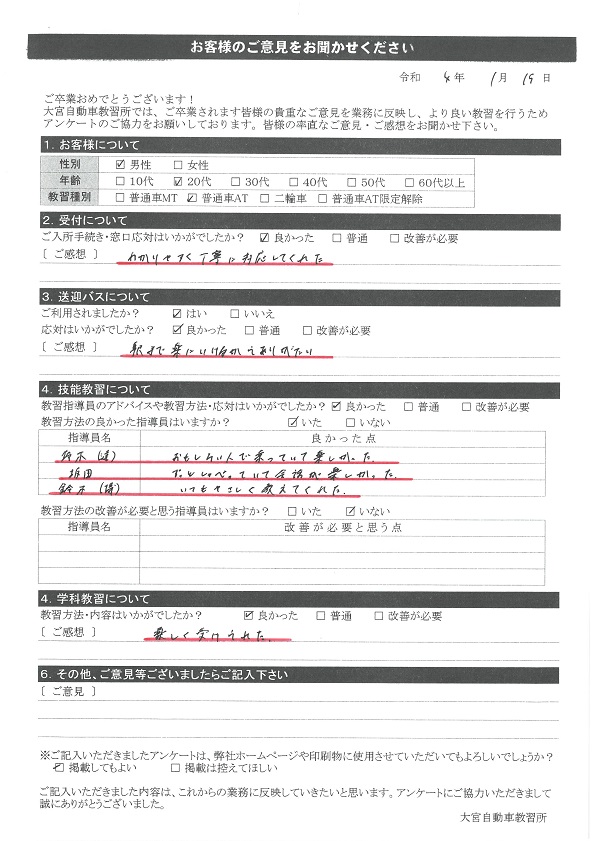 お客様のご意見をお聞かせください
令和 4 年 1 月 19 日
ご卒業おめでとうございます！
大宮自動車教習所では、ご卒業されます皆様の貴重なご意見を業務に反映し、より良い教習を行うため
アンケートのご協力をお願いしております。皆様の率直なご意見・ご感想をお聞かせ下さい。
1. お客様について
性別 ☑ 男性 □ 女性
年齢 □ 10代 ☑ 20代 □ 30代 □ 40代 □ 50代 □ 60代以上
教習種別 □ 普通車MT ☑ 普通車AT □ 二輪車 □ 普通車AT限定解除
2. 受付について
ご入所手続き・窓口応対はいかがでしたか？ ☑ 良かった □ 普通 □ 改善が必要
［ ご感想 ］ わかりやすく丁寧に対応してくれた
3. 送迎バスについて
ご利用されましたか？ ☑ はい □ いいえ
応対はいかがでしたか？ ☑ 良かった □ 普通 □ 改善が必要
［ ご感想 ］ 駅まで楽にいけるからありがたい
4. 技能教習について
教習指導員のアドバイスや教習方法・応対はいかがでしたか？ ☑ 良かった □ 普通 □ 改善が必要
教習方法の良かった指導員はいますか？ ☑ いた □ いない
指導員名 良かった点
鈴木 おもしろい人で乗っていて楽しかった
ていて会話が楽しかった.
鈴木 いつもやさしく教えてくれた.
教習方法の改善が必要と思う指導員はいますか？ □ いた ☑ いない
指導員名 改善が必要と思う点
4. 学科教習について
教習方法・内容はいかがでしたか？ ☑ 良かった □ 普通 □ 改善が必要
［ ご感想 ］ 楽しく受けられた.
6. その他、ご意見等ございましたらご記入下さい
［ ご意見 ］
※ご記入いただきましたアンケートは、弊社ホームページや印刷物に使用させていただいてもよろしいでしょうか？
☑ 掲載してもよい □ 掲載は控えてほしい
ご記入いただきました内容は、これからの業務に反映していきたいと思います。アンケートにご協力いただきまして
誠にありがとうございました。
大宮自動車教習所